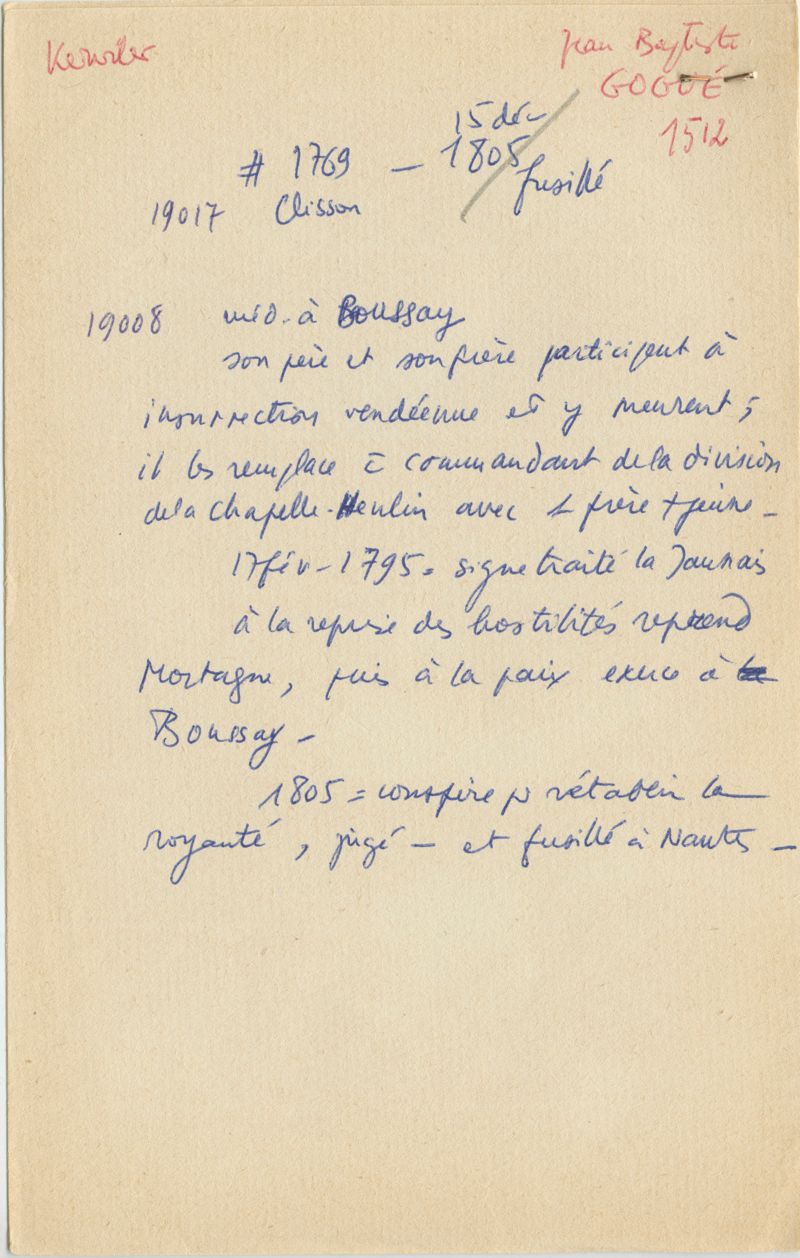 Kerviler
Jean Baptiste
GOGUÉ
1512
15 déc
# 1769 – 1805
fusillé
19017 Clisson
19008 méd. à Boussay
son père et son frère participent à
insurrection vendéenne et y meurent ;
il les remplace c commandant de la division
de la Chapelle-Heulin avec s frère + jeune –
17 fév – 1795 = signe traité la Jaunais
à la reprise des hostilités reprend
Mortagne, puis à la paix exerce à
Boussay –
1805 = conspire pr rétablir la
royauté, jugé – et fusillé à Nantes –